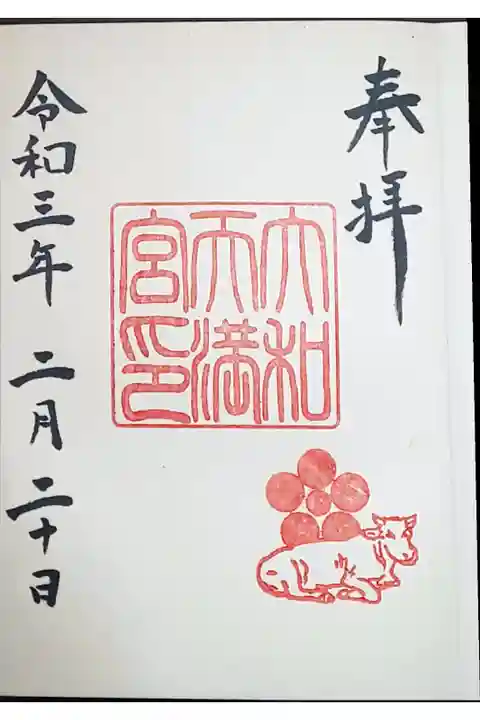 奉拝
大和
天満
宮印
令和三年 二月二十日